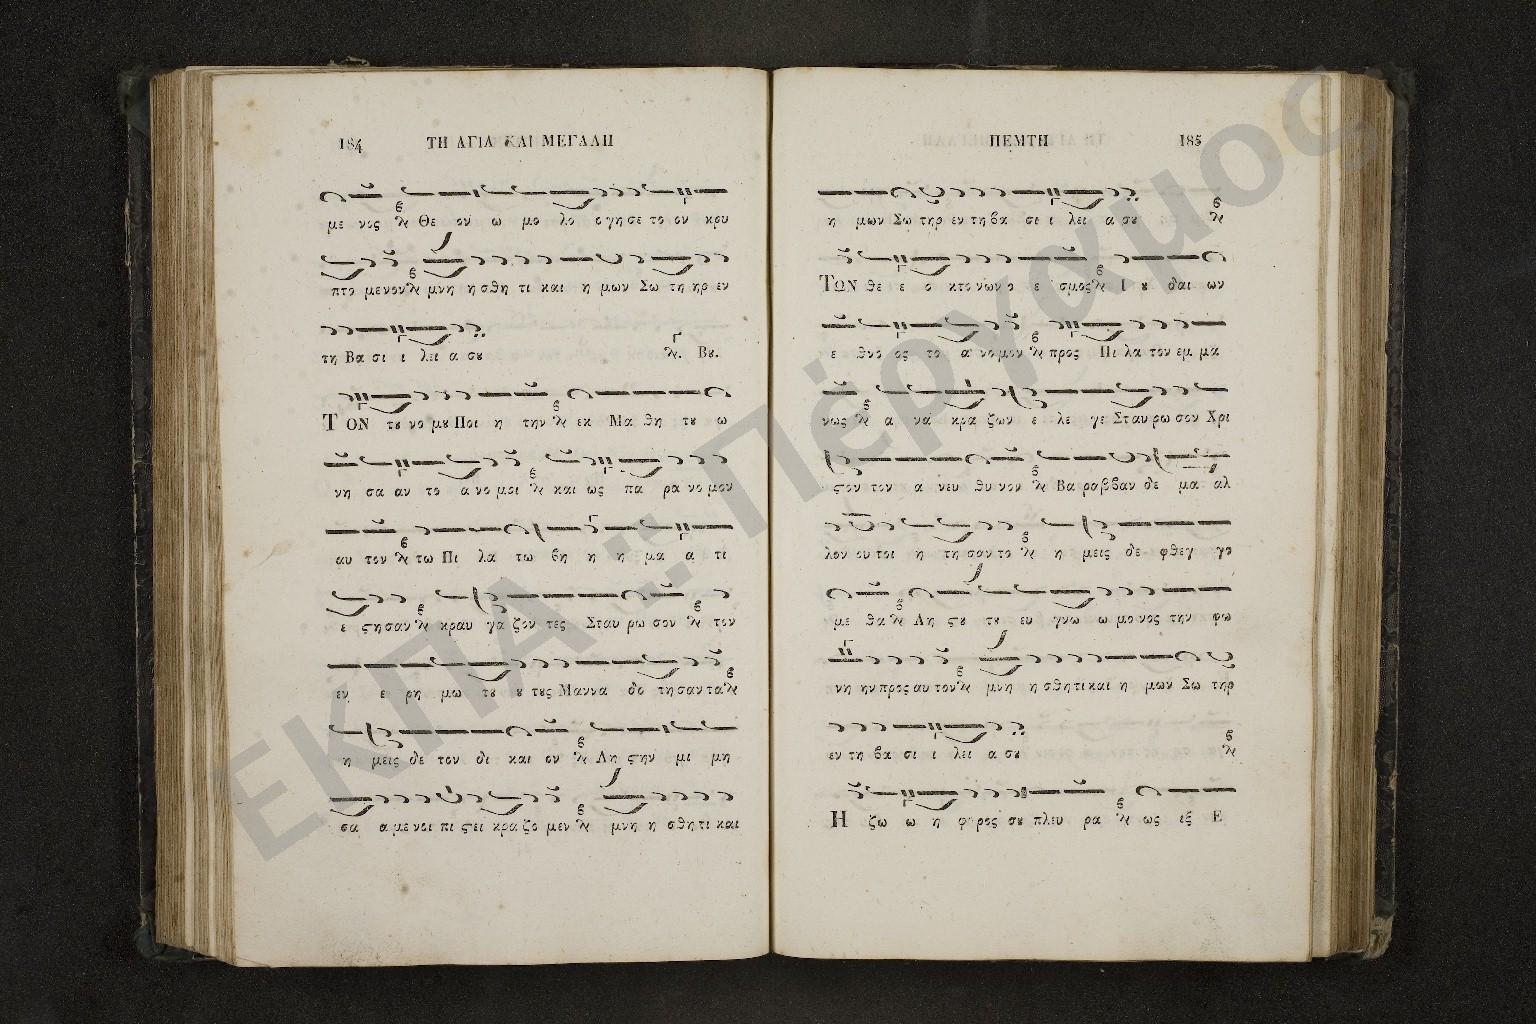 184 ΤΗ ΑΓΙΑ ΚΑΙ ΜΕΓΑΛΗ
με νος Θε ον ω μο λο ο γη σε το ον κρυ
πτο με νον μνη η σθη τι και η μων Σω τη ηρ εν
τη Βα σι ι λει α σȣ Βȣ.
ΤΟΝ τȣ νο μȣ Ποι η την εκ Μα θη τȣ ω
νη σα αν το α νο μοι και ως πα ρα νο μον
αυ τον τω Πι λα τω βη η η μα α τι
ε ϛη σαν κραυ γα ζον τες Σταυ ρω σον τον
εν ε ρη μω τȣ ȣ τȣς Μαννα δο τη σαν τα
η μεις δε τον δι και ον Λη ϛην μι μη
σα α με νοι πι ϛει κρα ζο μεν μνη η σθη τι και
ΠΕΜΤΗ 185
η μων Σω τηρ εν τη βα σι ι λει α σȣ
ΤΩΝ θε ε ο κτο νων ο ε σμος Ι ȣ δαι ων
ε θνο ος το α νο μον προς Πι λα τον εμ μα
νως α να κρα ζων ε λε γε Σταυ ρω σον Χρι
ϛον τον α νευ θυ νον Βα ραββαν δε μα αλ
λον ου τοι η τη σαν το η μεις δε φθεγ γο
με θα Λη ϛȣ τȣ ευ γνω ω μο νος την φω
νη ην προς αυ τον μνη η σθη τι και η μων Σω τηρ
εν τη βα σι ι λει α σȣ
Η ζω ω η φορος σȣ πλευ ρα ως εξ Ε
ΕΚΠΑ :: Πέργαμος